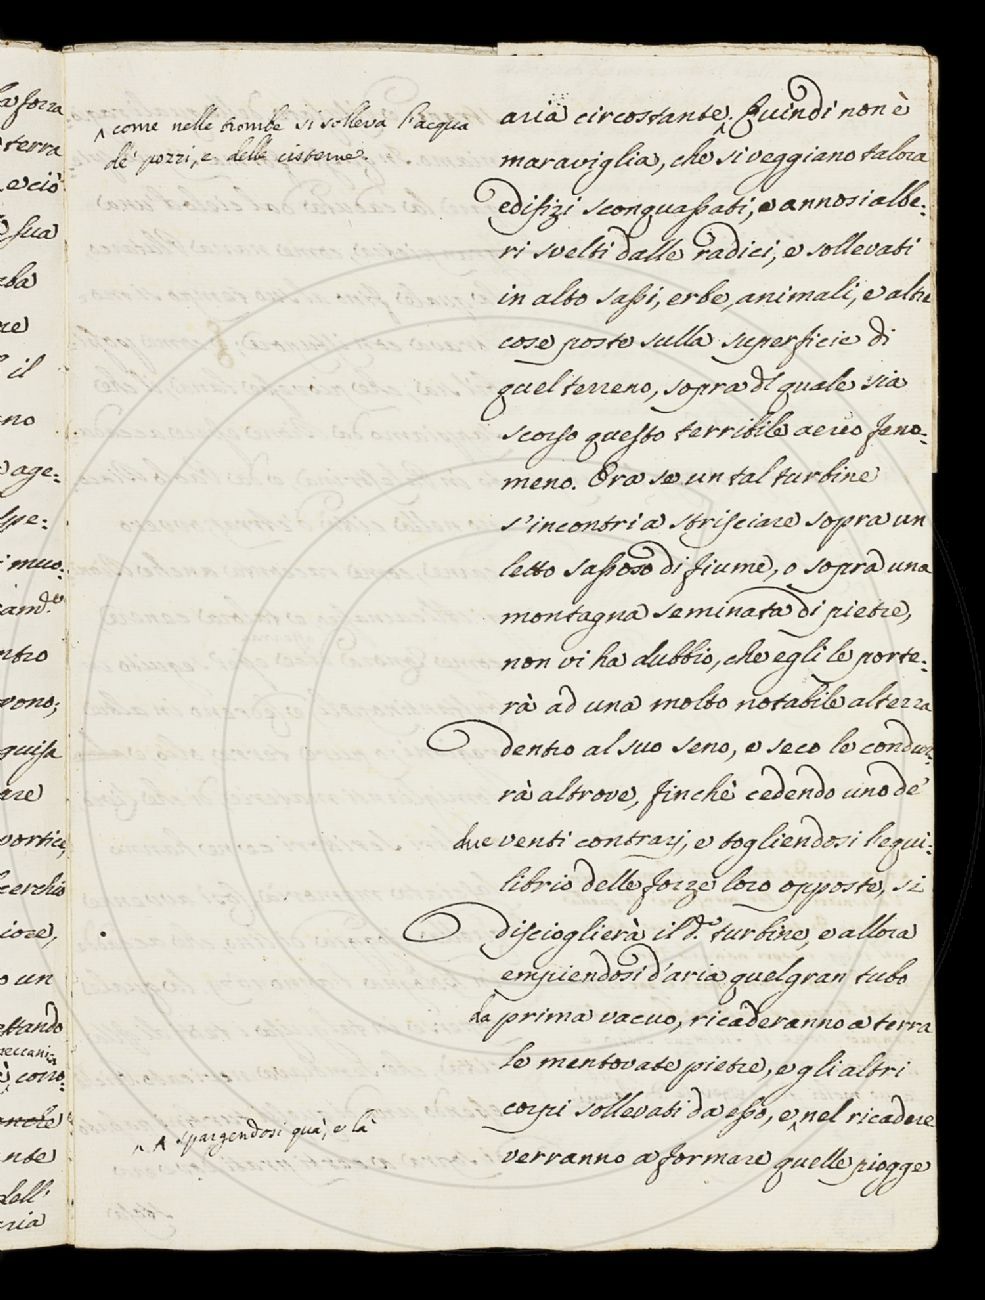 ^ come nelle trombe si solleva l'acqua
de' pozzi, e delle cisterne.
aria circostante.^ Quindi non è
maraviglia, che si veggiano talora
edifizi sconquassati, e annosi albe:
ri svelti dalle radici, e sollevati
in alto sassi, erbe, animali, e altre
cose poste sulla superficie di
quel terreno, sopra di quale sia
scorso questo terribile aereo feno:
meno. Ora se un tal turbine
s'incontri a strisciare sopra un
letto sassoso di fiume, o sopra una
montagna seminata di pietre,
non vi ha dubbio, che egli le porte:
rà ad una molto notabile altezza
dentro al suo seno, e seco le condur:
rà altrove, finchè cedendo uno de'
due venti contrarj, e togliendosi l'equi:
librio delle forze loro opposte, si
discioglierà il d.° turbine, e allora
empiendosi d'aria quel gran tubo
da prima vacuo, ricaderanno a terra
le mentovate pietre, e gli altri
corpi sollevati da esso, e ^ nel ricadere
^ spargendosi quà, e là
verranno a formare quelle piogge
la forza
terra
e ciò
sua
il
no
age:
spe:
muo:
vono;
guisa
vortice,
cerchio
un
dell'
aria